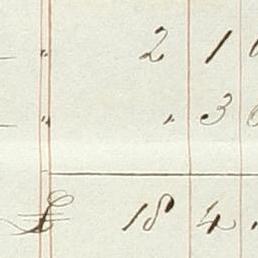 " 2 1
" " 3
£ 18 4 "